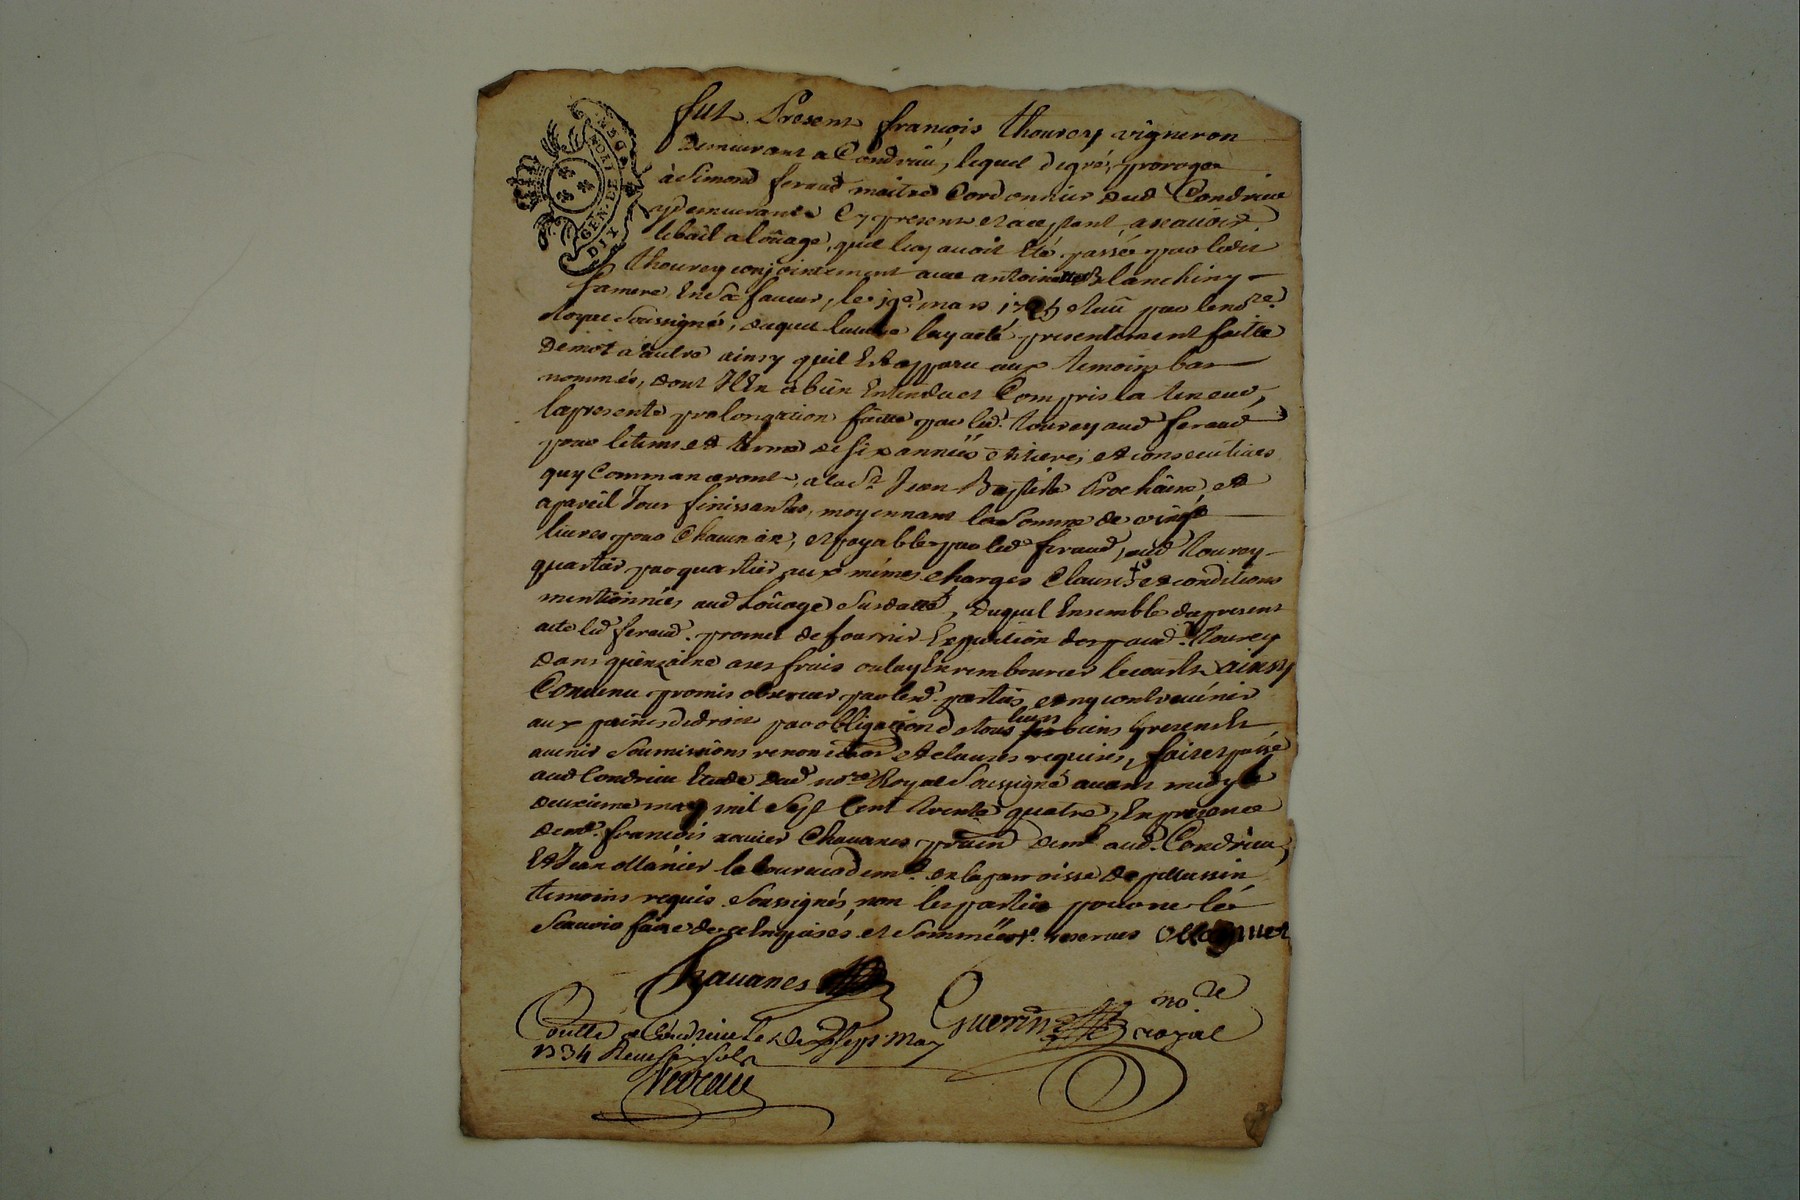 MOYEN DE PAP
GEN. DE LION
DIX
fut Present françois thourey vigneron
Demeurant a Condrieu, lequel degré, proroge
à Simond feraud maitre Cordonnier aud Condrieu
y demeurant Cy present et aceptant, a scauoir
le bail a loüage, quil luy auoit Eté passé par ledit
thourey conjointement auec antoinette Blanchiny
famere En sa faueur, le 19e mars Reçu par le nore
Royal Soussigné, duquel lecture luy a eté presentement faitte
De mot à autre ainsy quil Est apparu aux temoins bas
nommés, dont Il En a bien Entendu et Compris la teneur,
la presente prolongation faitte par led. tourey aud feraud
pour le tems et terme de six années Entieres et consecutiues
quy Commanceront, a la St Jean Baptiste Prochaine, et
a pareil Jour finissantes, moyennant la Somme de vingt
liures pour Chacun an, et payable par led feraud, aud tourey
quartier par quartier, aux mémes charges Clauses et conditions
mentionnées aud Loüage Susdatté, Duquel Ensemble du present
acte led feraud. promet de fournir Expedition aud. tourey
dans quinzaine a ses frais ou luy En rembourcer le coust ainsy
Conuenu promis obseruer par led. parties et ny contreuenir
aux peines de droit par obligation de tous leurs biens presents Et
auenir Soumissions renonciation et clauses requises, fait et passé
aud Condrieu Etude dud nore Royal Soussigné auant midy le
deuxieme may mil Sept Cent trente quatre, En presence
de mr. françois xauier Chauanes praticien demt aud. Condrieu,
Et Jean Manier laboureur demt. en la parroisse de pelussin
temoins requis Soussignés, non les parties pour ne le
Scauoir faire de ce Enquises et Sommées
Chauanes
Guerin nore royal
Collé a Condrieu le sept May
1734 Receu six sols